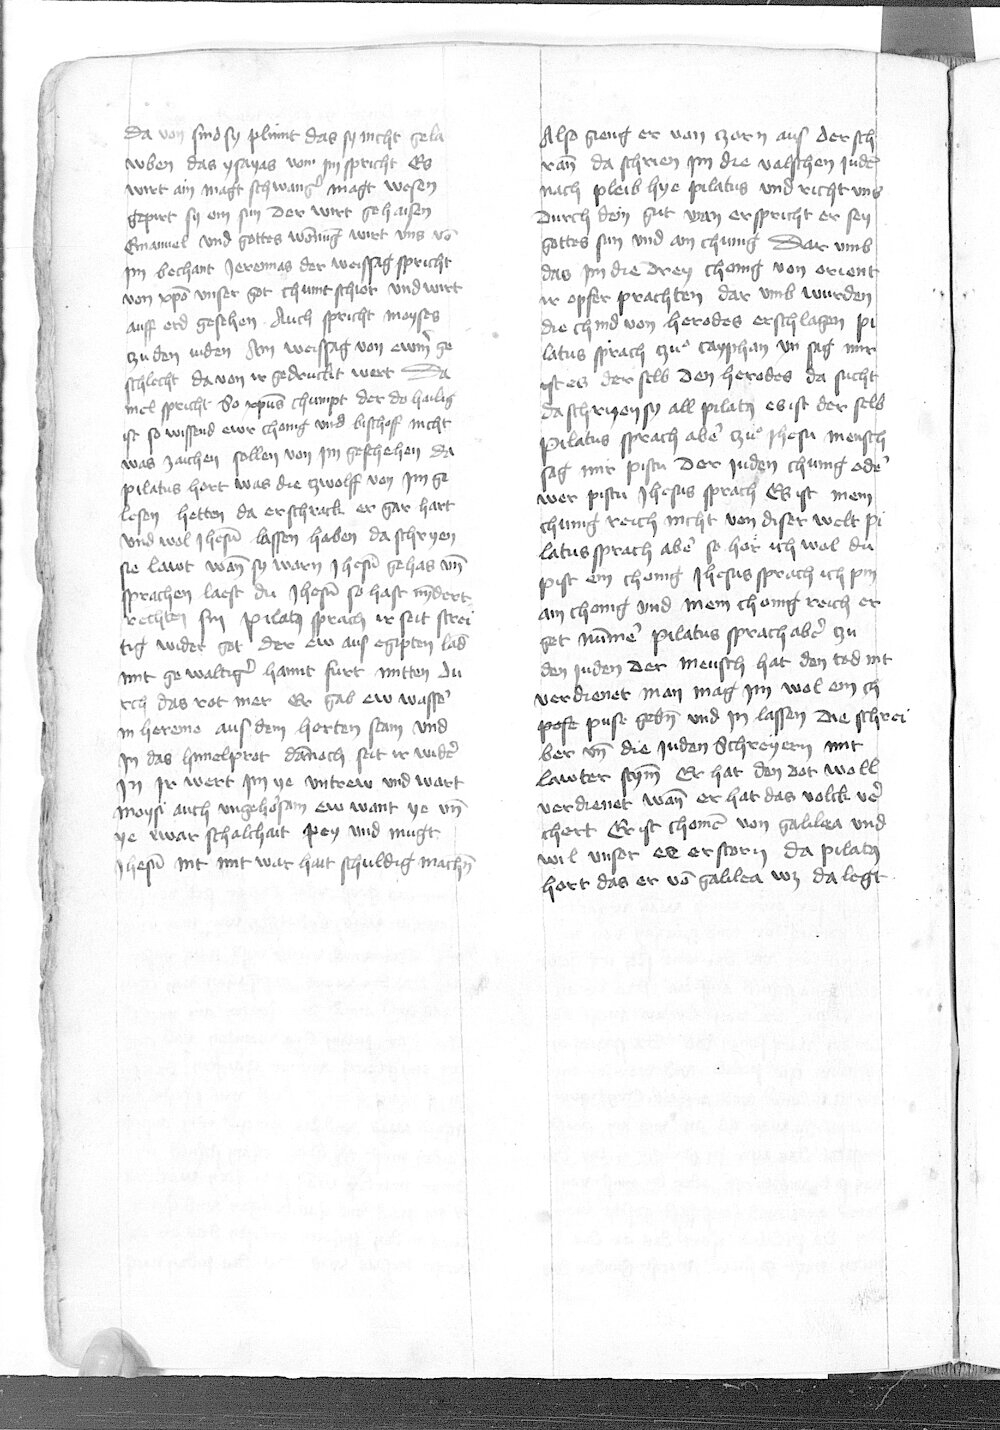 Da von sind sy plint das sy nicht gela
wben das ysayas vom im spricht Es
wirt ain magt schwang̉ magt wesen
gepirt sy ein sun Der wirt gehaisen
Emanuel vnd gottes wōnūg wirt vns vō
Im bechant Jeremias der weissag spricht
von xpō vnser got chumt schior vnd wirt
auff erd gesehen Auch spricht moyses
tzu den iuden Ain weissag von ewm̄ ge
schlecht da von ir gedruckt wert Da
niel spricht So xpūs chumpt der do hailig
ist so wissend ewr chonig vnd bischoff nicht
was zaichen sollen von Im geschehen Da
pilatus hort was die tzwolff von Im ge
lesen hetten da erschrack er gar hart
vnd wol Jhesū lassen haben da schryen
sie lawt wān sy warn Jhesū gehas vn̄
sprachen laest du Jhesū so hast nyndert
rechten sin pilatꝯ sprach ir seit strei
tig wider got der ew aus egipten lād
mit gewaltig̉ hannt furt mitten du
rch das rot mer Er gab ew wasse᷑
in hereme aus dem horten stam vnd
In das himelprot dānoch seit ir wide᷑
In Ir wert Im ye vntrew vnd wart
Moysi auch vngehorsam ew want ye vn̄
ye zwar schalchait pey vnd mugt
Jhesū nit mit war hait schuldig machn̄
Also gieng er von tzorn aus der sch
ran̄ da schrien Im die valschen iude᷑
nach pleib hye pilatus vnd richt vns
Durch dein gut wan er spricht er sey
gottes sun vnd ain chunig Dar vmb
das Im die Drey chonig von orient
ir opfer prachten dar vmb wurden
die chind von herodes erschlagen pi
latus sprach tzu cayphan vn sag mir
ist es der selb Den herodes da sucht
da schryen sy all pilatꝯ es ist der selb
pilatus sprach abe᷑ tzu Jhesu mensch
sag mir pistu Der Juden chunig ode᷑
wer pistu Jhesus sprach Es ist mein
chunig reich nicht von diser welt pi
latus sprach abe᷑ so hor ich wol du
pist ein chonig Jhesus sprach ich pin
ain chonig vnd mein chonig reich er
get nūme᷑ pilatus sprach abe᷑ tzu
den Juden Der mensch hat den tod nit
verdienet man mag im wol ein ch
pose puse gebn̄ vnd In lassen Die schrei
ber vn̄ die Juden Schreyern mit
lawter stym̄ Er hat den Dot woll
verdienet wān er hat das volck ve᷑
chert Er ist chomē von galilea vnd
wil vnser ee erstorn da pilatꝯ
hort das er vō galilea wz da legt